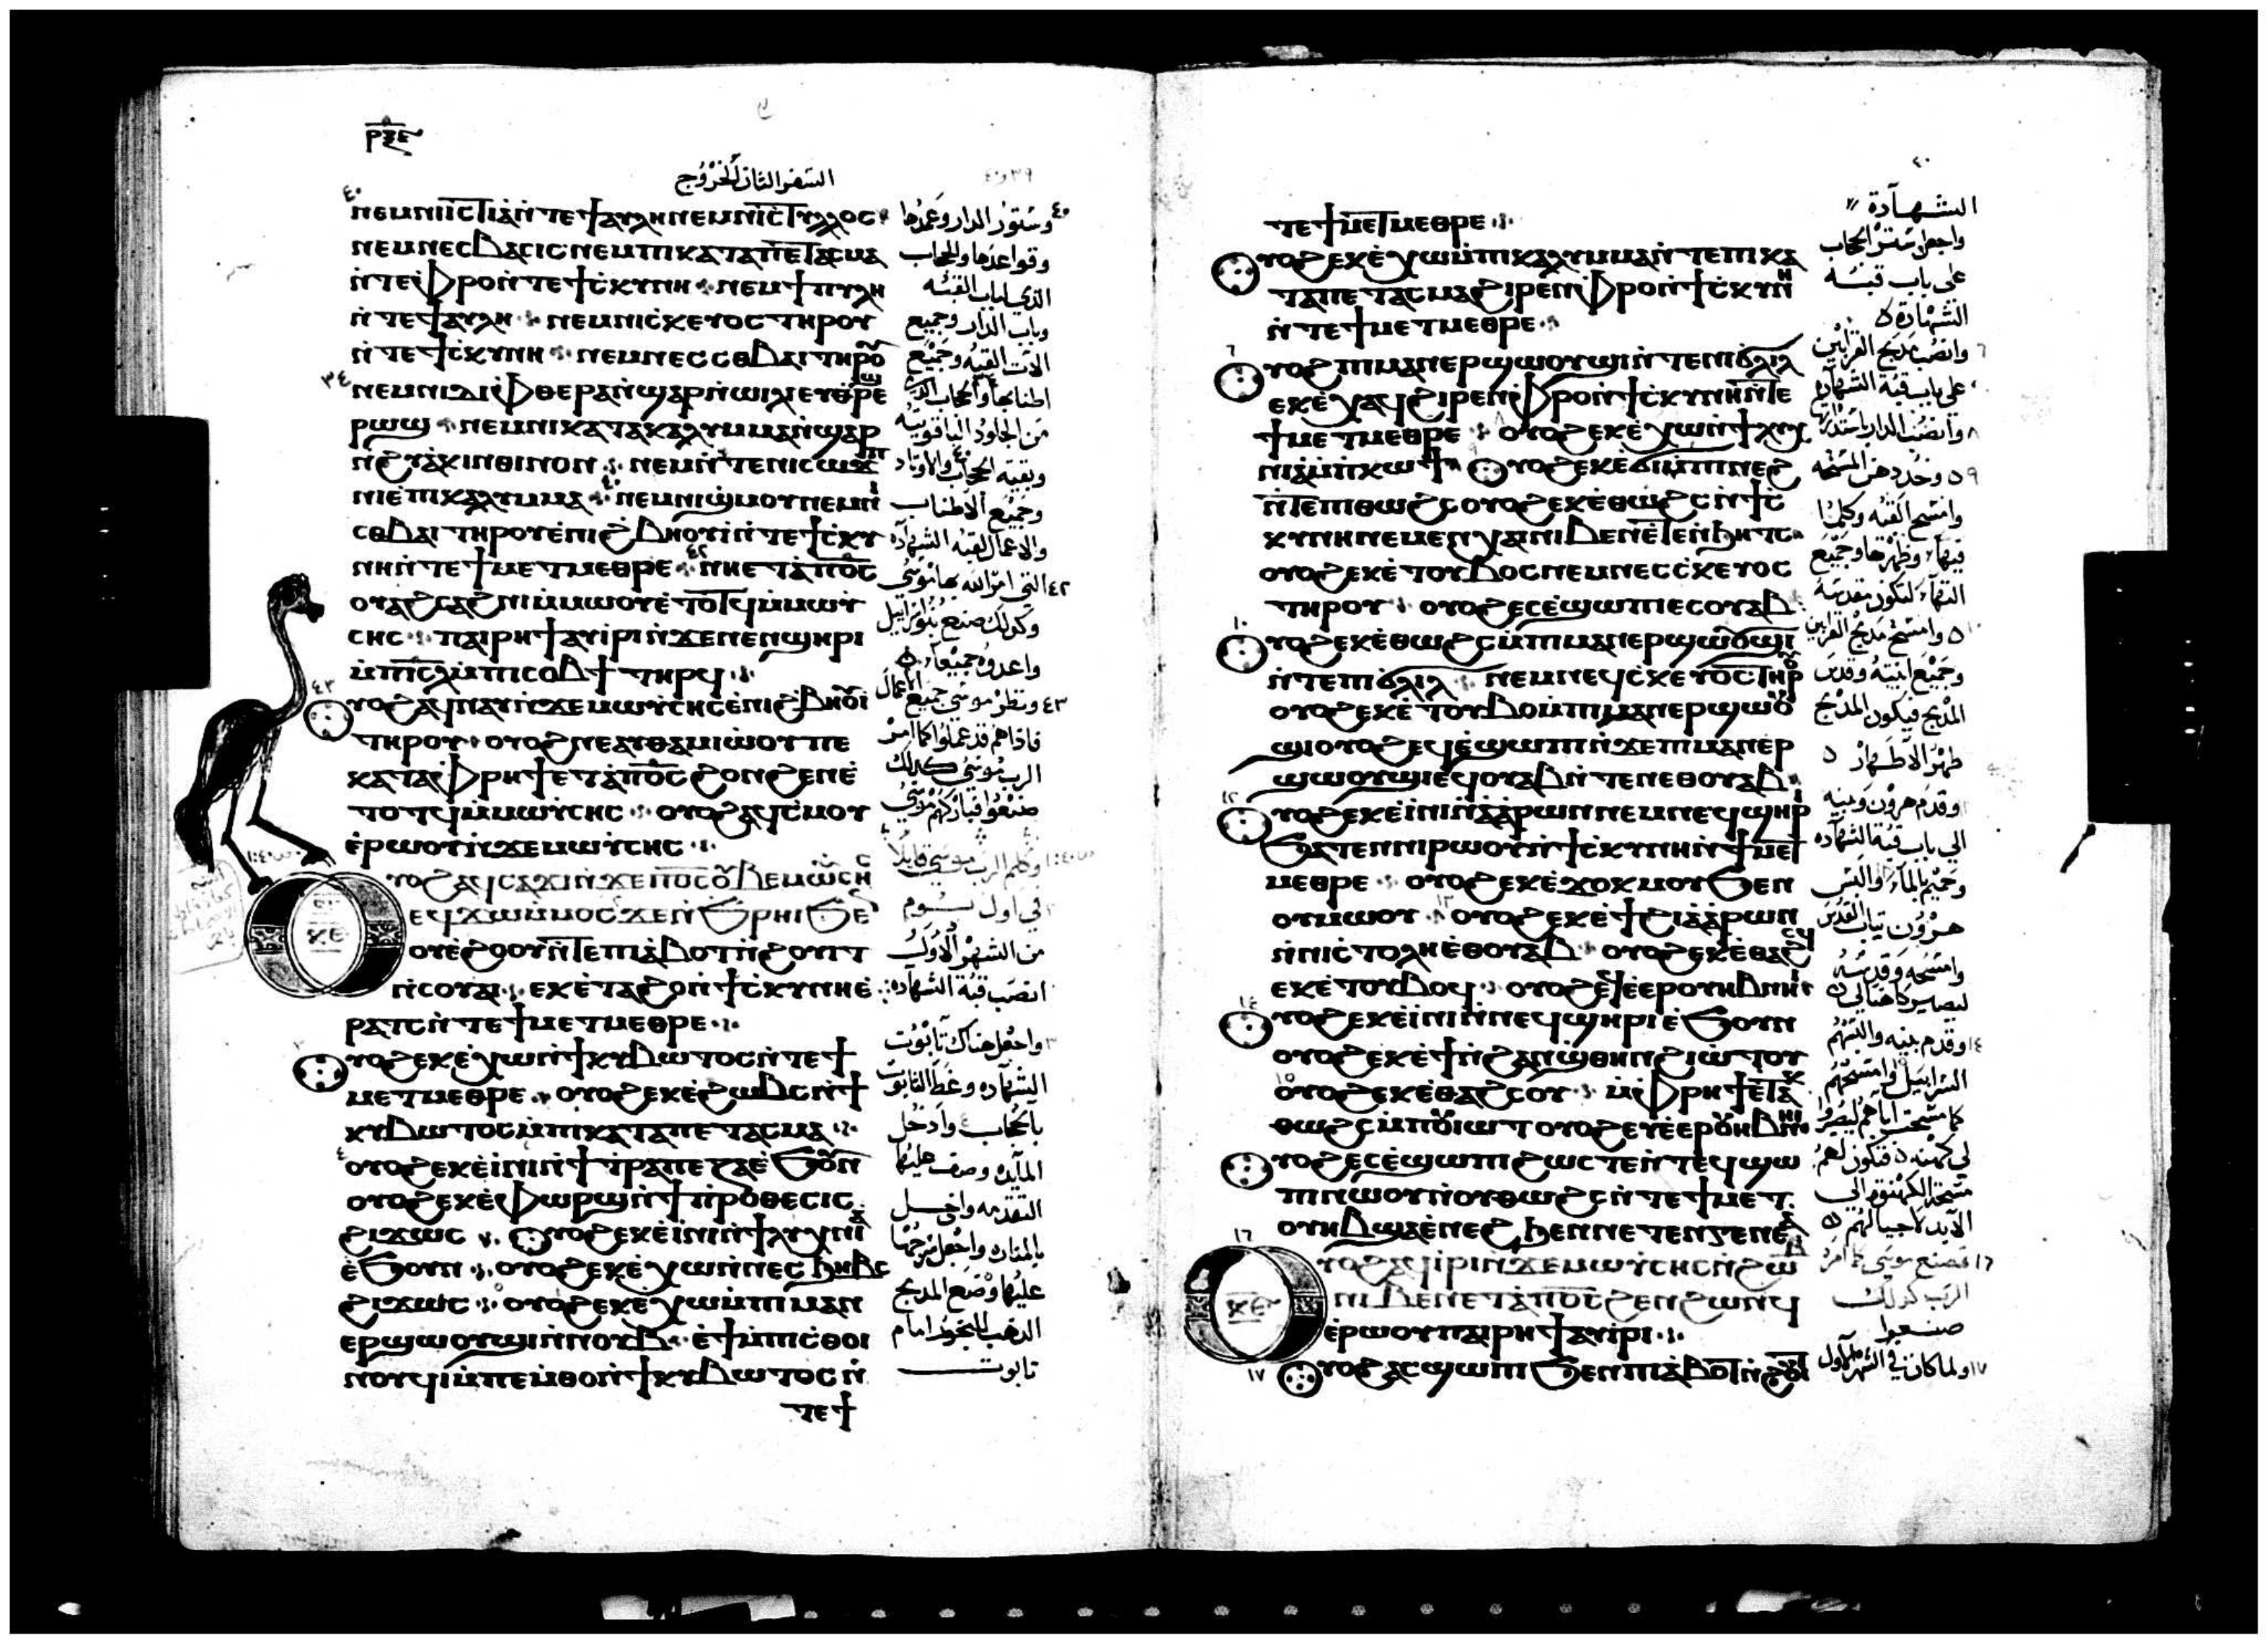 ⲣⲝⲉ
السفر الثانى الخروج
ⲛⲉⲙⲛⲓⲓⲥⲧⲓⲁ̀ⲛ̀ⲧⲉϯⲁⲩⲗⲏⲛⲉⲙⲛⲓⲥ̀ⲧⲩⲗⲗⲟⲥ
ⲛⲉⲙⲛⲉⲥⲃⲁⲥⲓⲥⲛⲉⲙⲡⲓⲕⲁⲧⲁⲡⲉⲧⲁⲥⲙⲁ
ⲛ̀ⲧⲉⲫⲣⲟⲛ̀ⲧⲉϯⲥ̀ⲕⲩⲛⲏ ⲛⲉⲙϯⲡⲩⲗⲏ
ⲛ̀ⲧⲉϯⲁⲩⲗⲏ ⲛⲉⲙⲛⲓⲥ̀ⲕⲉⲩⲟⲥⲧⲏⲣⲟⲩ
ⲛ̀ⲧⲉϯⲥ̀ⲕⲩⲛⲏ ⲛⲉⲙⲛⲉⲥⲥⲑⲃⲁⲓⲧⲏⲣⲟⲩ
ⲛⲉⲙⲛⲓⲇⲓⲫⲑⲉⲣⲁⲛ̀ϣⲁⲣⲛ̀ⲱⲓⲗⲉⲩⲑⲣⲉϣ
ⲣⲱϣ ⲛⲉⲙⲛⲓⲕⲁⲧⲁⲕⲁⲗⲩⲙⲙⲁⲛ̀ϣⲁⲣ
ⲛ̀ϩⲩⲁ̀ⲕⲓⲛⲑⲓⲛⲟⲛ ⲛⲉⲙⲛ̀ⲧⲉⲛⲓⲥⲱϫⲡ
ⲛⲓⲉ̀ⲡⲓⲕⲁⲗⲩⲙⲙⲁ ⲛⲉⲙⲛⲓϣ̀ⲙⲟⲩⲛⲉⲙⲛⲓ
ⲥⲑⲃⲁⲓⲧⲏⲣⲟⲩⲉ̀ⲛⲓϩ̀ⲃⲏⲟⲩⲓ̀ⲛ̀ⲧⲉϯⲥ̀ⲕⲩ
ⲛⲏⲛ̀ⲧⲉϯⲙⲉⲧⲙⲉⲑⲣⲉ ⲛⲏⲉⲧⲁⲡⲟ̅ⲥ̅
ⲟⲩⲁϩⲥⲁϩⲛⲓⲙ̀ⲙⲱⲟⲩⲉ̀ⲧⲟⲧϥⲙ̀ⲙⲱⲩ̀
ⲥⲏⲥ ⲡⲁⲓⲣⲏϯⲁⲩⲓ̀ⲣⲓⲛ̀ϫⲉⲛⲉⲛϣⲏⲣⲓ
ⲙ̀ⲡⲓⲥ̅ⲗ̅ⲙ̀ⲡⲓⲥⲟⲃϯ ⲧⲏⲣϥ
ⲟⲩⲟϩⲁϥⲛⲁⲩⲛ̀ϫⲉⲙⲱⲩ̀ⲥⲏⲥⲉ̀ⲛⲓϩ̀ⲃⲏⲟⲩⲓ̀
ⲧⲏⲣⲟⲩ ⲟⲩⲟϩⲛⲉⲁⲩⲑⲁⲙⲓⲱ̀ⲟⲩⲡⲉ
ⲕⲁⲧⲁⲫⲣⲏϯⲉⲧⲁ̀ⲡⲟ̅ⲥ̅ϩⲟⲛϩⲉⲛⲉ̀
ⲧⲟⲧϥⲙ̀ⲙⲱⲩ̀ⲥⲏⲥ ⲟⲩⲟϩⲁϥⲥ̀ⲙⲟⲩ
ⲉ̀ⲣⲱⲟⲩⲛ̀ϫⲉⲙⲱⲩ̀ⲥⲏⲥ
ⲟⲩⲟϩⲁϥⲥⲁϫⲓⲛ̀ϫⲉⲡⲟ̅ⲥ̅ⲟⲩⲃⲉⲙⲱⲩ̀ⲥⲏⲥ
ⲉϥϫⲱⲙ̀ⲙⲟⲥϫⲉⲛ̀ϧⲣⲏⲓϧⲉⲛ
ⲟⲩⲉ̀ϩⲟⲟⲩⲛ̀ⲧⲉⲡⲓⲁ̀ⲃⲟⲧⲛ̀ϩⲟⲩⲓⲧ
ⲛ̀ⲥⲟⲩⲁⲓ ⲉⲕⲉ̀ⲧⲁϩⲟⲛ̀ϯⲥ̀ⲕⲩⲛⲏⲉ̀
ⲣⲁⲧⲥⲛ̀ⲧⲉϯⲙⲉⲧⲙⲉⲑⲣⲉ
ⲟⲩⲟϩⲉⲕⲉ̀ⲭⲱⲛ̀ϯⲕⲩⲃⲱⲧⲟⲥⲛ̀ⲧⲉϯ
ⲙⲉⲧⲙⲉⲑⲣⲉ ⲟⲩⲟϩⲉⲕⲉ̀ϩⲱⲃⲥⲛ̀ϯ
ⲕⲩⲃⲱⲧⲟⲥⲙ̀ⲡⲓⲕⲁⲧⲁⲡⲉⲧⲁⲥⲙⲁ
ⲟⲩⲟϩⲉⲕⲉ̀ⲓ̀ⲛⲓⲛ̀ϯⲧ̀ⲣⲁⲡⲉⲍⲁⲉ̀ϧⲟⲩⲛ
ⲟⲩⲟϩⲉⲕⲉ̀ⲫⲱⲣϣⲛ̀ϯⲡ̀ⲣⲟⲑⲉⲥⲓⲥ
ϩⲓϫⲱⲥ ⲟⲩⲟϩⲉⲕⲉ̀ⲓ̀ⲛⲓⲛ̀ϯⲗⲩⲭⲛⲓⲁ
ⲉ̀ϧⲟⲩⲛ ⲟⲩⲟϩⲉⲕⲉ̀ⲭⲱⲛ̀ⲛⲉⲥϧⲏⲃⲥ
ϩⲓϫⲱⲥ ⲟⲩⲟϩⲉⲕⲉ̀ⲭⲱⲙ̀ⲡⲓⲙⲁⲛ
ⲉⲣϣⲱⲟⲩϣⲓⲛ̀ⲛⲟⲩⲃ ⲉ̀ϯⲙ̀ⲡⲓⲥ̀ⲑⲟⲓ
ⲛⲟⲩϥⲓⲙ̀ⲡⲉⲙ̀ⲑⲟⲛ̀ϯⲕⲩⲃⲱⲧⲟⲥⲛ̀
ⲧⲉϯ
٤٠ وستور الدار وعمدها
وقواعدها والحجاب
الذي لباب القبه
وباب الدار وجميع
الات القبه وجميع
من الجلود الياقوتيه
وجميع الاطناب
والاعمال لقبه الشهاده
٤٢ التي امر الله بها موسى
وكذلك صنع بنو اسرايل
واعدوه جميعا
٤٣ ونظر موسى جميع الاعمال
فاذاهم قد عملوا كما امر
الرب موسى كذلك
صنعوا فباركهم موسى
وكلم الرب موسى قايلا
في اول يوم
من الشهر الاول
انصب قبة الشهاده
٣ واجعل هناك تابوت
الشهاده وغط التابوت
بالحجاب ٤ وادخل
المايده وصف عليها
التقدمه وادخل
بالمناره واجعل سرجها
عليها وضع المذبح
الذهب للبخور امام
تابوت
٤٠
الشهادة
ⲧⲉϯⲙⲉⲧⲙⲉⲑⲣⲉ
ⲟⲩⲟϩⲉⲕⲉ̀ⲭⲱⲙ̀ⲡⲓⲕⲁⲗⲩⲙⲙⲁⲛ̀ⲧⲉⲡⲓⲕⲁ
ⲧⲁⲡⲉⲧⲁⲥⲙⲁϩⲓⲣⲉⲛⲫⲣⲟⲛ̀ϯⲥ̀ⲕⲩⲛⲏ
ⲛ̀ⲧⲉϯⲙⲉⲧⲙⲉⲑⲣⲉ
ⲟⲩⲟϩⲡⲓⲙⲁⲛⲉⲣϣⲱⲟⲩϣⲓⲛ̀ⲧⲉⲡⲓϭⲗⲓⲗ
ⲉⲕⲉ̀ⲭⲁϥϩⲓⲣⲉⲛⲫⲣⲟⲛ̀ϯⲥ̀ⲕⲩⲛⲏⲛ̀ⲧⲉ
ϯⲙⲉⲧⲙⲉⲑⲣⲉ ⲟⲩⲟϩⲉⲕⲉ̀ⲭⲱⲛ̀ϯⲁⲩⲗⲏ
ⲟⲩⲟϩⲉⲕⲉ̀ϭⲓⲙ̀ⲡⲓⲛⲉϩ
ⲛ̀ⲧⲉⲡⲓⲑⲱϩⲥⲟⲩⲟϩⲉⲕⲉ̀ⲑⲱϩⲥⲛ̀ϯⲥ̀
ⲕⲩⲛⲏⲛⲉⲙⲉⲛⲭⲁⲓⲛⲓⲃⲉⲛⲉ̀ⲧⲉⲛ̀ϧⲏⲧⲥ
ⲟⲩⲟϩⲉⲕⲉ̀ⲧⲟⲩⲃⲟⲥⲛⲉⲙⲛⲉⲥⲥ̀ⲕⲉⲩⲟⲥ
ⲧⲏⲣⲟⲩ ⲟⲩⲟϩⲉⲥⲉ̀ϣⲱⲡⲓⲉⲥⲟⲩⲁⲃ
ⲟⲩⲟϩⲉⲕⲉ̀ⲑⲱϩⲥⲙ̀ⲡⲓⲙⲁⲛⲉⲣϣⲱⲟⲩϣⲓ
ⲛ̀ⲧⲉⲡⲓϭⲗⲓⲗ ⲛⲉⲙⲛⲉϥⲥ̀ⲕⲉⲩⲟⲥⲧⲏⲣⲟⲩ
ⲟⲩⲟϩⲉⲕⲉ̀ⲧⲟⲩⲃⲟⲙ̀ⲡⲓⲙⲁⲛⲉⲣϣⲱⲟⲩ
ϣⲓⲟⲩⲟϩⲉϥⲉ̀ϣⲱⲡⲓⲛ̀ϫⲉⲡⲓⲙⲁⲛⲉⲣ
ϣⲱⲟⲩϣⲓⲉϥⲟⲩⲁⲃⲛ̀ⲧⲉⲛⲉⲑⲟⲩⲁⲃ
ⲟⲩⲟϩⲉⲕⲉ̀ⲓ̀ⲛⲓⲛ̀ⲁ̀ⲁ̀ⲣⲱⲛⲛⲉⲙⲛⲉϥϣⲏⲣⲓ
ϧⲁⲧⲉⲛⲛⲓⲣⲱⲟⲩⲛ̀ϯⲥ̀ⲕⲩⲛⲏⲛ̀ϯⲙⲉⲧ
ⲙⲉⲑⲣⲉ ⲟⲩⲟϩⲉⲕⲉ̀ϫⲟⲕⲙⲟⲩϧⲉⲛ
ⲟⲩⲙⲱⲟⲩ ⲟⲩⲟϩⲉⲕⲉ̀ϯϩⲓⲁ̀ⲁ̀ⲣⲱⲛ
ⲛ̀ⲛⲓⲥ̀ⲧⲟⲗⲏⲉⲑⲟⲩⲁⲃ ⲟⲩⲟϩⲉⲕⲉ̀ⲑⲁϩⲥϥ
ⲉⲕⲉ̀ⲧⲟⲩⲃⲟϥ ⲟⲩⲟϩⲉϥⲉ̀ⲉⲣⲟⲩⲏⲃⲛⲏⲓ
ⲟⲩⲟϩⲉⲕⲉ̀ⲓ̀ⲛⲓⲛ̀ⲛⲉϥϣⲏⲣⲓⲉ̀ϧⲟⲩⲛ
ⲟⲩⲟϩⲉⲕⲉ̀ϯⲛ̀ϩⲁⲛϣ̀ⲑⲏⲛϩⲓⲱ̀ⲧⲟⲩ
ⲟⲩⲟϩⲉⲕⲉ̀ⲑⲁϩⲥⲟⲩ ⲙ̀ⲫⲣⲏϯⲉ̀ⲧⲁⲕ
ⲑⲱϩⲥⲙ̀ⲡⲟⲩⲓⲱⲧⲟⲩⲟϩⲉⲩⲉ̀ⲉⲣⲟⲩⲏⲃⲛⲏⲓ
ⲟⲩⲟϩⲉⲥⲉ̀ϣⲱⲡⲓϩⲱⲥⲧⲉⲛ̀ⲧⲉϥϣⲱ
ⲡⲓⲛⲱⲟⲩⲛ̀ⲟⲩⲑⲱϩⲥⲛ̀ⲧⲉϯⲙⲉⲧ
ⲟⲩⲏⲃϣⲁⲉ̀ⲛⲉϩϧⲉⲛⲛⲉⲧⲉⲛⲅⲉⲛⲉⲁ̀
ⲟⲩⲟϩⲁϥⲓ̀ⲣⲓⲛ̀ϫⲉⲙⲱⲩ̀ⲥⲏⲥⲛ̀ϩⲱⲃ
ⲛⲓⲃⲉⲛⲉⲧⲁ̀ⲡⲟ̅ⲥ̅ϩⲉⲛϩⲱⲛϥ
ⲉ̀ⲣⲱⲟⲩⲡⲁⲓⲣⲏϯⲁϥⲓ̀ⲣⲓ
ⲟⲩⲟϩⲁⲥϣⲱⲡⲓϧⲉⲛⲡⲓⲁ̀ⲃⲟⲧⲛ̀ϩⲟⲩⲓⲧ
واجعل ستر الحجاب
على باب قبة
الشهادة
وانصب مذبح القرابين
على باب قبة الشهاده
وامسح القبه وكلما
فيها وطهرها وجميع
التها لتكون مقدسه
وامسح مذبح القرابين
وجميع انيته وقدس
المذبح فيكون المذبح
طهر الاطهار
وقدم هرون وبنيه
الى باب قبة الشهاده
وحميهم بالماء والبس
هرون تياب القدس
وامسحه وقدسه
ليصير كاهنا لي
١٤ وقدم بنيه والبسهم
السرابيل وامسحهم
كما مسحت اباهم ليصيروا
لي كهنه فتكون لهم
مسحة الكهنوت الى
الابد لاجيالهم
١٦ فصنع موسى كما امر
الرب كذلك
صنعوا
١٧ ولما كان في الشهر الاول